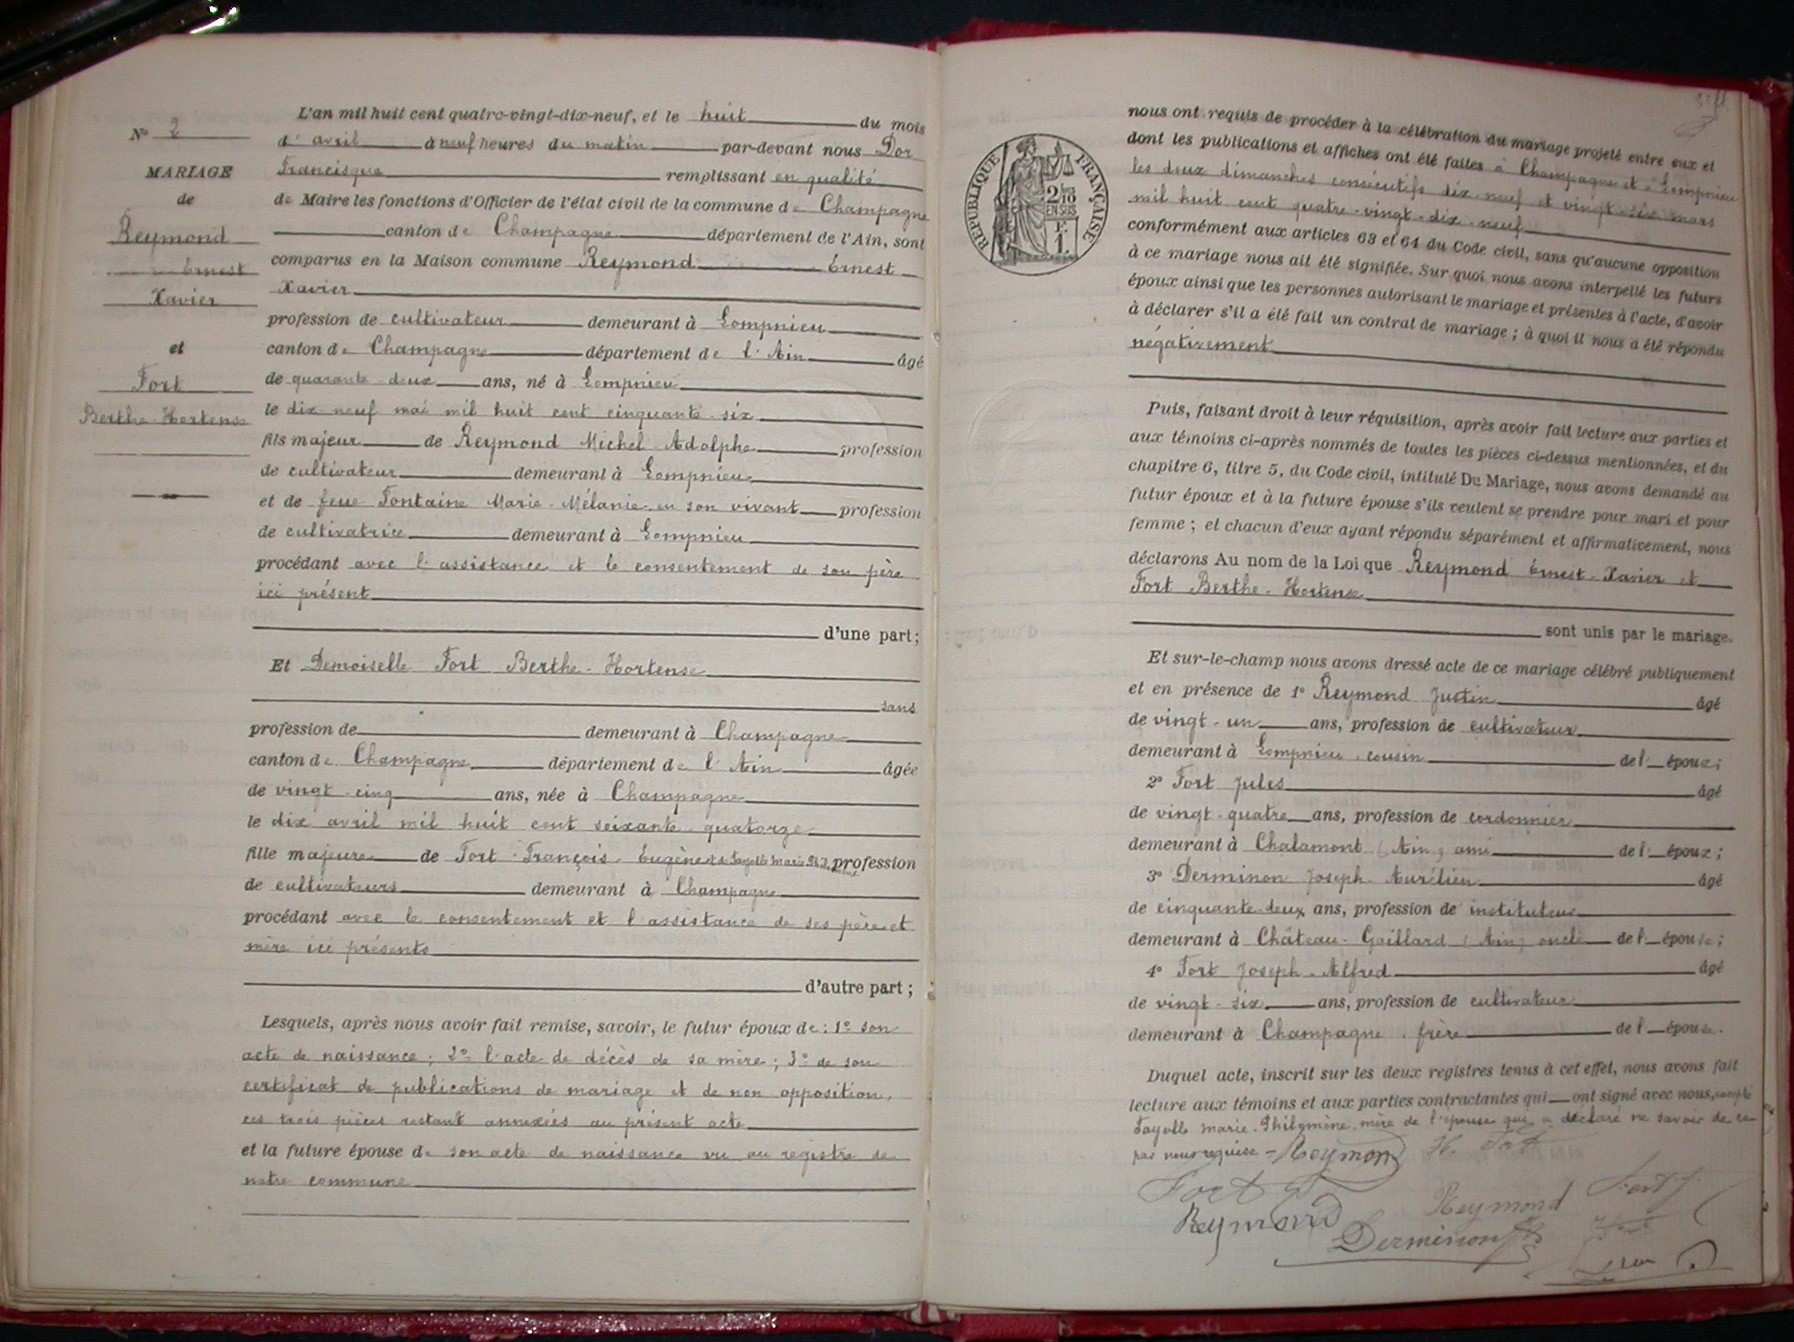 N° 2
MARIAGE
de
Reymond
Ernest
Xavier
et
Fort
Berthe-Hortense
L'an mil huit cent quatre-vingt-dix-neuf, et le huit du mois
d'avril à neuf heures du matin par-devant nous Dor
Francisque remplissant en qualité
de Maire les fonctions d'Officier de l'état civil de la commune de Champagne
canton de Champagne département de l'Ain, sont
comparus en la Maison commune Reymond Ernest
Xavier
profession de cultivateur demeurant à Lompnieu
canton de Champagne département de l'Ain âgé
de quarante-deux ans, né à Lompnieu
le dix neuf mai mil huit cent cinquante-six
fils majeur de Reymond Michel Adolphe profession
de cultivateur demeurant à Lompnieu
et de feue Fontaine Marie-Mélanie en son vivant profession
de cultivatrice demeurant à Lompnieu
procédant avec l'assistance et le consentement de son père
ici présent
d'une part;
Et Demoiselle Fort Berthe-Hortense
sans
profession de demeurant à Champagne
canton de Champagne département de l'Ain âgée
de vingt-cinq ans, née à Champagne
le dix avril mil huit cent soixante-quatorze
fille majeure de Fort François-Eugène et de Fayolle Marie profession
de cultivateurs demeurant à Champagne
procédant avec le consentement et l'assistance de ses père et
mère ici présents
d'autre part;
Lesquels, après nous avoir fait remise, savoir, le futur époux de: 1° son
acte de naissance; 2° l'acte de décès de sa mère; 3° de son
certificat de publications de mariage et de non opposition,
ces trois pièces restant annexées au présent acte
et la future épouse de son acte de naissance vu au registre de
notre commune
RÉPUBLIQUE FRANÇAISE
2/10
EN SUS
F.
1.
nous ont requis de procéder à la célébration du mariage projeté entre eux et
dont les publications et affiches ont été faites à Champagne et à Lompnieu
les deux dimanches consécutifs dix-neuf et vingt-six mars
mil huit cent quatre-vingt-dix-neuf
conformément aux articles 63 et 64 du Code civil, sans qu'aucune opposition
à ce mariage nous ait été signifiée. Sur quoi nous avons interpellé les futurs
époux ainsi que les personnes autorisant le mariage et présentes à l'acte, d'avoir
à déclarer s'il a été fait un contrat de mariage; à quoi il nous a été répondu
négativement
Puis, faisant droit à leur réquisition, après avoir fait lecture aux parties et
aux témoins ci-après nommés de toutes les pièces ci-dessus mentionnées, et du
chapitre 6, titre 5, du Code civil, intitulé Du Mariage, nous avons demandé au
futur époux et à la future épouse s'ils veulent se prendre pour mari et pour
femme; et chacun d'eux ayant répondu séparément et affirmativement, nous
déclarons Au nom de la Loi que Reymond Ernest-Xavier et
Fort Berthe-Hortense
sont unis par le mariage.
Et sur-le-champ nous avons dressé acte de ce mariage célébré publiquement
et en présence de 1° Reymond Justin âgé
de vingt-un ans, profession de cultivateur
demeurant à Lompnieu, cousin de l'époux;
2° Fort Jules âgé
de vingt-quatre ans, profession de cordonnier
demeurant à Chalamont (Ain) ami de l'époux;
3° Derminon Joseph-Aurélien âgé
de cinquante-deux ans, profession de instituteur
demeurant à Château-Gaillard (Ain) oncle de l'épouse;
4° Fort Joseph-Alfred âgé
de vingt-six ans, profession de cultivateur
demeurant à Champagne, frère de l'épouse.
Duquel acte, inscrit sur les deux registres tenus à cet effet, nous avons fait
lecture aux témoins et aux parties contractantes qui ont signé avec nous, excepté
Fayolle Marie-Philomène, mère de l'épouse qui a déclaré ne savoir de ce
par nous requise - Reymond H. Fort
Fort Reymond Fort J.
Reymond
Derminon
Dor